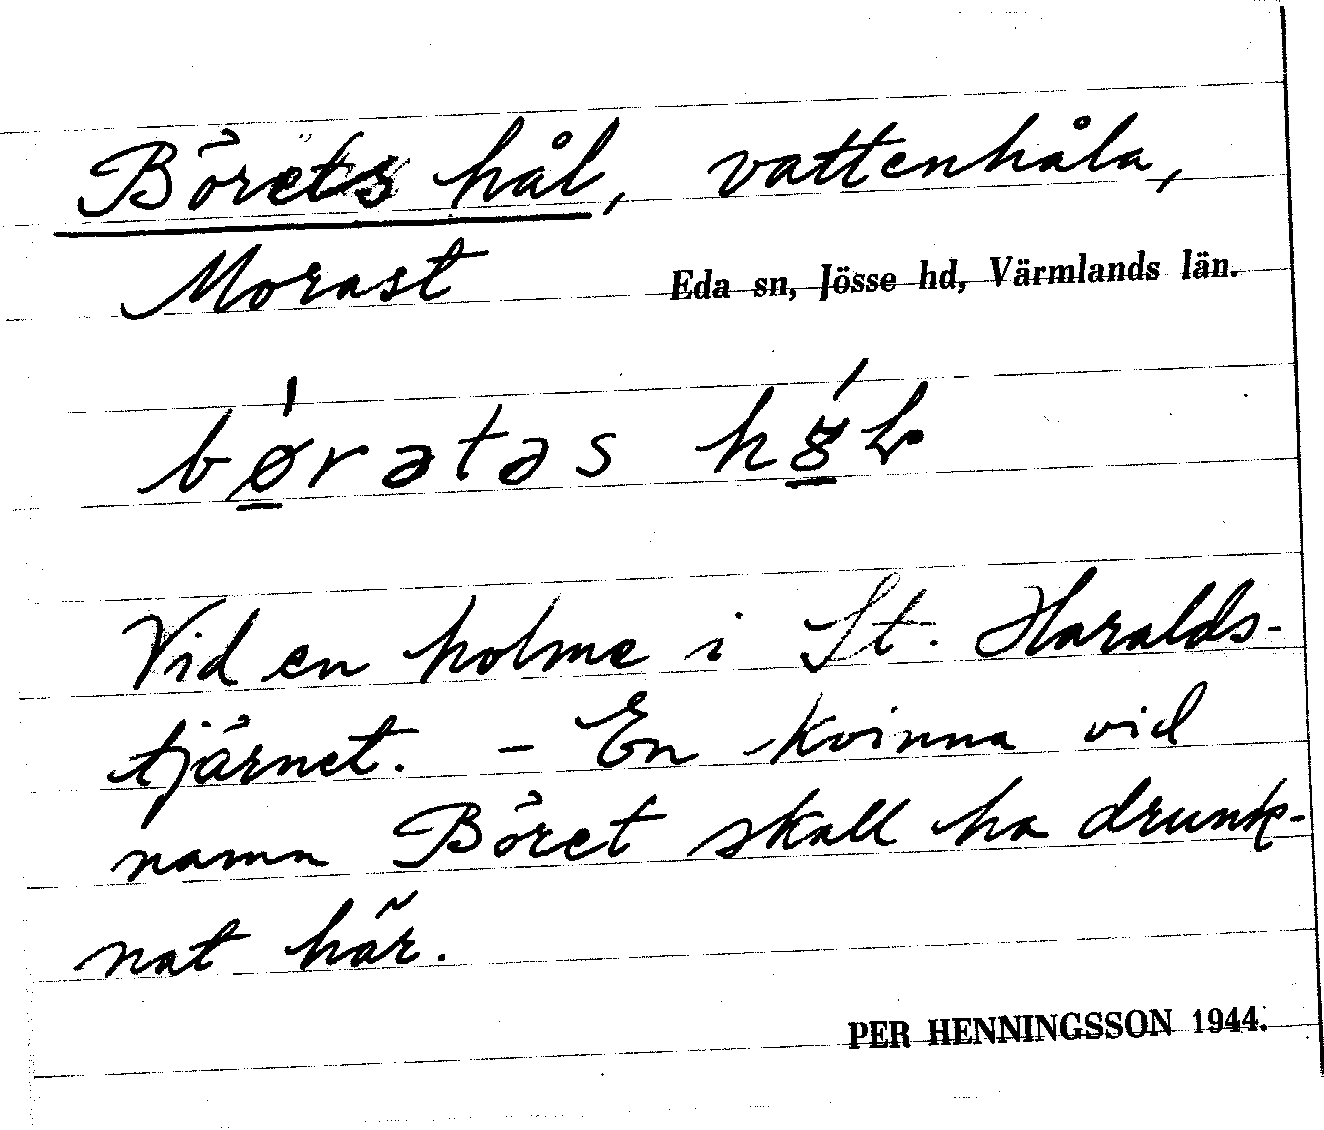 Börets hål, vattenhåla,
Morast
Eda sn, Jösse hd, Värmlands län.
bǿ̱rətəs
Vid en holme i St. Haralds-
tjärnet. - En kvinna vid
namn Böret skall ha drunk-
nat här.
PER HENNINGSSON 1944.